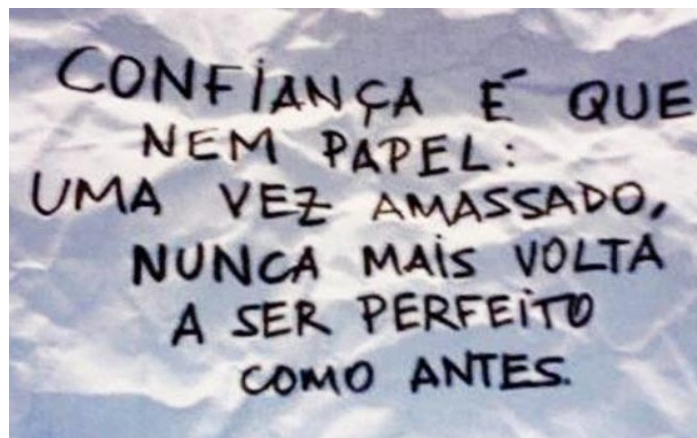 CONFIANÇA É QUE
NEM PAPEL:
UMA VEZ AMASSADO,
NUNCA MAIS VOLTA
A SER PERFEITO
COMO ANTES.